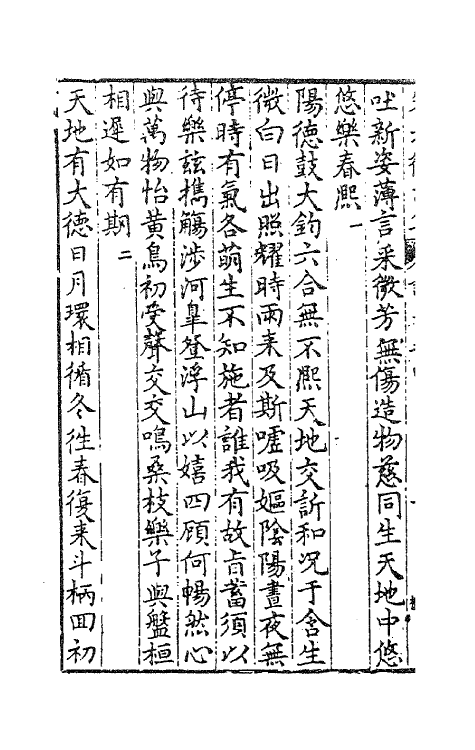 吐新姿薄言采微芳無傷造物慈同生天地中悠
悠樂春熙 一
陽德鼓大鈞六合無不熙天地交訢和况于含生
微白日出照耀時雨来及斯噓吸嫗陰陽晝夜無
停時有氣各萌生不知施者誰我有故㫖蓄須以
待樂玆攜觴涉河臯登浮山以嬉四顧何暢然心
與萬物怡黄鳥初受聲交交鳴桑枝樂子與盤桓
相遲如有期 二
天地有大德日月環相循冬徃春復来斗柄回初